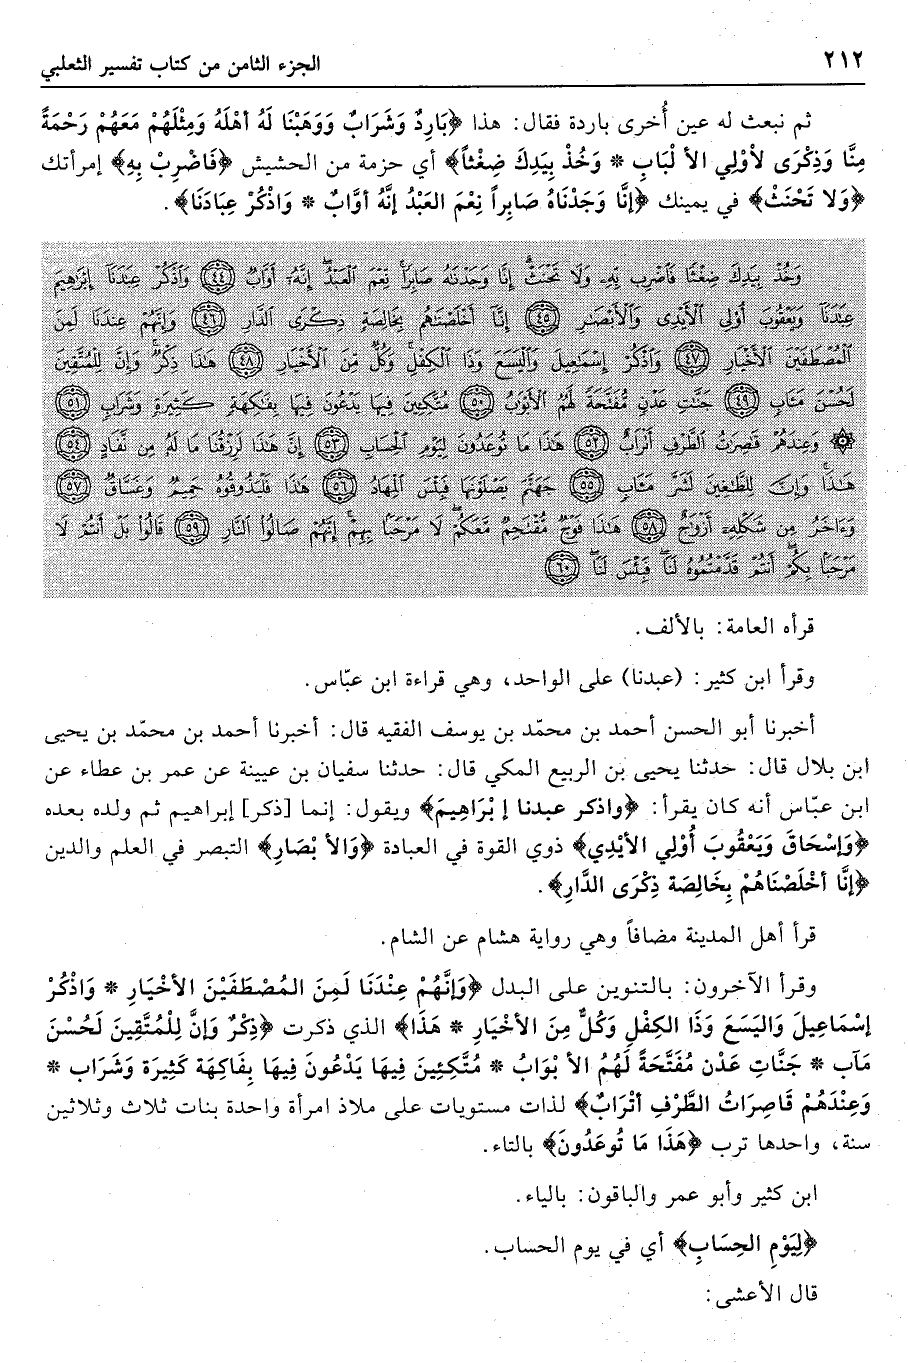 ٢١٢
الجزء الثامن من كتاب تفسير الثعلبي
ثم نبعث له عين أُخرى باردة فقال: هذا ﴿بَارِدٌ وَشَرَابٌ وَوَهَبْنَا لَهُ أهْلَهُ وَمِثْلَهُمْ مَعَهُمْ رَحْمَةً
مِنَّا وَذِكْرَى لأوْلِي الأ لْبَابِ * وَخُذْ بِيَدِكَ ضِغْثاً﴾ أي حزمة من الحشيش ﴿فَاضْرِبْ بِهِ﴾ إمرأتك
﴿وَلا تَحْنَثْ﴾ في يمينك ﴿إنَّا وَجَدْنَاهُ صَابِراً نِعْمَ العَبْدُ إنَّهُ أوَّابٌ * وَاذْكُرْ عِبَادَنَا﴾.
وَخُذْ بِيَدِكَ ضِغْثًا فَاضْرِب بِّهِ وَلَا تَحْنَثْ إِنَّا وَجَدْنَٰهُ صَابِرًا نِّعْمَ الْعَبْدُ إِنَّهُۥ أَوَّابٌ ﴿٤٤﴾ وَاذْكُرْ عِبَٰدَنَآ إِبْرَٰهِيمَ
عِبَٰدَنَآ وَيَعْقُوبَ أُوْلِى الْأَيْدِى وَالْأَبْصَٰرِ ﴿٤٥﴾ إِنَّآ أَخْلَصْنَٰهُم بِخَالِصَةٍ ذِكْرَى الدَّارِ ﴿٤٦﴾ وَإِنَّهُمْ عِندَنَا لَمِنَ
الْمُصْطَفَيْنَ الْأَخْيَارِ ﴿٤٧﴾ وَاذْكُرْ إِسْمَٰعِيلَ وَالْيَسَعَ وَذَا الْكِفْلِ وَكُلٌّ مِّنَ الْأَخْيَارِ ﴿٤٨﴾ هَٰذَا ذِكْرٌ وَإِنَّ لِلْمُتَّقِينَ
لَحُسْنَ مَـَٔابٍ ﴿٤٩﴾ جَنَّٰتِ عَدْنٍ مُّفَتَّحَةً لَّهُمُ الْأَبْوَٰبُ ﴿٥٠﴾ مُتَّكِـِٔينَ فِيهَا يَدْعُونَ فِيهَا بِفَٰكِهَةٍ كَثِيرَةٍ وَشَرَابٍ ﴿٥١﴾
۞ وَعِندَهُمْ قَٰصِرَٰتُ الطَّرْفِ أَتْرَابٌ ﴿٥٢﴾ هَٰذَا مَا تُوعَدُونَ لِيَوْمِ الْحِسَابِ ﴿٥٣﴾ إِنَّ هَٰذَا لَرِزْقُنَا مَا لَهُۥ مِن نَّفَادٍ ﴿٥٤﴾
هَٰذَا وَإِنَّ لِلطَّٰغِينَ لَشَرَّ مَـَٔابٍ ﴿٥٥﴾ جَهَنَّمَ يَصْلَوْنَهَا فَبِئْسَ الْمِهَادُ ﴿٥٦﴾ هَٰذَا فَلْيَذُوقُوهُ حَمِيمٌ وَغَسَّاقٌ ﴿٥٧﴾
وَءَاخَرُ مِن شَكْلِهِۦٓ أَزْوَٰجٌ ﴿٥٨﴾ هَٰذَا فَوْجٌ مُّقْتَحِمٌ مَّعَكُمْ لَا مَرْحَبًا بِهِمْ إِنَّهُمْ صَالُوا النَّارِ ﴿٥٩﴾ قَالُوا بَلْ أَنتُمْ لَا
مَرْحَبًا بِكُمْ أَنتُمْ قَدَّمْتُمُوهُ لَنَا فَبِئْسَ لَنَا ﴿٦٠﴾
قرأه العامة: بالألف.
وقرأ ابن كثير: (عبدنا) على الواحد، وهي قراءة ابن عبّاس.
أخبرنا أبو الحسن أحمد بن محمّد بن يوسف الفقيه قال: أخبرنا أحمد بن محمّد بن يحيى
ابن بلال قال: حدثنا يحيى بن الربيع المكي قال: حدثنا سفيان بن عيينة عن عمر بن عطاء عن
ابن عبّاس أنه كان يقرأ: ﴿واذكر عبدنا إ بْرَاهِيمَ﴾ ويقول: إنما [ذكر] إبراهيم ثم ولده بعده
﴿وَإسْحَاقَ وَيَعْقُوبَ أُوْلِي الأيْدِي﴾ ذوي القوة في العبادة ﴿وَالأ بْصَارِ﴾ التبصر في العلم والدين
﴿إنَّا أخْلَصْنَاهُمْ بِخَالِصَة ذِكْرَى الدَّارِ﴾.
قرأ أهل المدينة مضافاً وهي رواية هشام عن الشام.
وقرأ الآخرون: بالتنوين على البدل ﴿وَإنَّهُمْ عِنْدَنَا لَمِنَ المُصْطَفَيْنَ الأخْيَارِ * وَاذْكُرْ
إسْمَاعِيلَ وَاليَسَعَ وَذَا الكِفْلِ وَكُلٌّ مِنَ الأخْيَارِ * هَذَا﴾ الذي ذكرت ﴿ذِكْرٌ وَإنَّ لِلْمُتَّقِينَ لَحُسْنَ
مَآب * جَنَّاتِ عَدْن مُفَتَّحَةً لَهُمُ الأ بْوَابُ * مُتَّكِئِينَ فِيهَا يَدْعُونَ فِيهَا بِفَاكِهَة كَثِيرَة وَشَرَاب *
وَعِنْدَهُمْ قَاصِرَاتُ الطَّرْفِ أتْرَابٌ﴾ لذات مستويات على ملاذ امرأة واحدة بنات ثلاث وثلاثين
سنة، واحدها ترب ﴿هَذَا مَا تُوعَدُونَ﴾ بالتاء.
ابن كثير وأبو عمر والباقون: بالياء.
﴿لِيَوْمِ الحِسَابِ﴾ أي في يوم الحساب.
قال الأعشى: